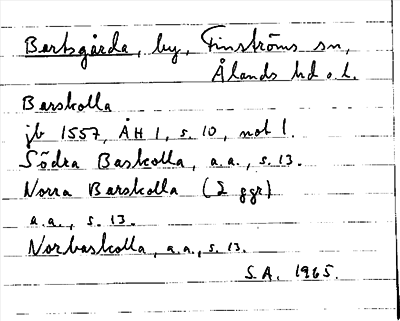 Bartsgårda, by, Finströms sn,
Ålands hd o. l.
Barskolla
jb 1557, ÅH 1, s. 10, not 1.
Södra Baskolla, a.a., s. 13.
Norra Barskolla (2 ggr)
a.a., s. 13.
Norbaskolla, a.a., s. 13.
S.A. 1965.